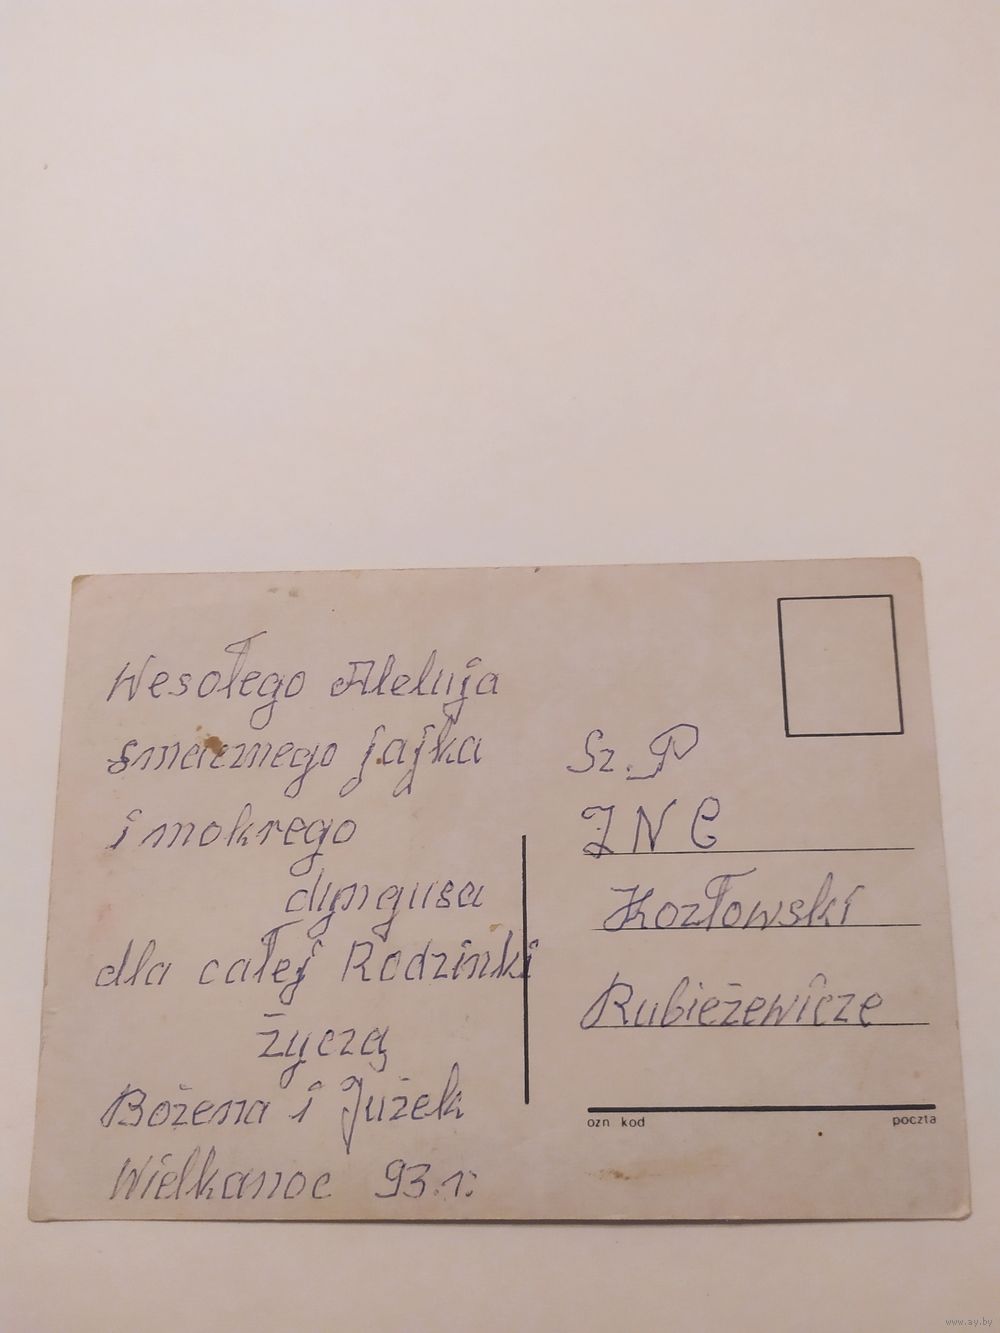 Wesołego Aleluja
smacznego jajka
i mokrego
dyngusa
dla całej Rodzinki
życzą
Bożena i Jużek
Wielkanoc 93.r.
Sz. P
J N C
Kozłowski
Rubieżewicze
ozn kod poczta
www.ay.by